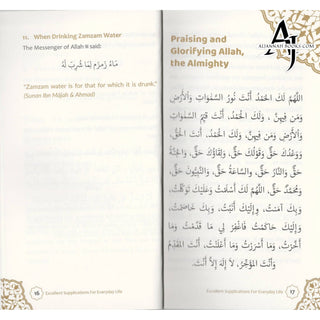 11. When Drinking Zamzam Water
The Messenger of Allah ﷺ said:
مَاءُ زَمْزَمَ لِمَا شُرِبَ لَهُ
"Zamzam water is for that for which it is drunk."
(Sunan Ibn Mājah & Ahmad)
16
Excellent Supplications For Everyday Life
AJ
ALJANNAH BOOKS.COM
Praising and
Glorifying Allah,
the Almighty
اللَّهُمَّ لَكَ الْحَمْدُ أَنْتَ نُورُ السَّمَوَاتِ وَالْأَرْضِ
وَمَنْ فِيهِنَّ، وَلَكَ الْحَمْدُ، أَنْتَ قَيِّمُ السَّمَوَاتِ
وَالْأَرْضِ وَمَنْ فِيهِنَّ، وَلَكَ الْحَمْدُ، أَنْتَ الْحَقُّ،
وَوَعْدُكَ حَقٌّ وَقَوْلُكَ حَقٌّ، وَلِقَاؤُكَ حَقٌّ، وَالْجَنَّةُ
حَقٌّ، وَالنَّارُ حَقٌّ، وَالسَّاعَةُ حَقٌّ، وَالنَّبِيُّونَ حَقٌّ،
وَمُحَمَّدٌ حَقٌّ، اللَّهُمَّ لَكَ أَسْلَمْتُ وَعَلَيْكَ تَوَكَّلْتُ،
وَبِكَ آمَنْتُ، وَإِلَيْكَ أَنَبْتُ، وَبِكَ خَاصَمْتُ،
وَإِلَيْكَ حَاكَمْتُ فَاغْفِرْ لِي مَا قَدَّمْتُ وَمَا
أَخَّرْتُ، وَمَا أَسْرَرْتُ وَمَا أَعْلَنْتُ، أَنْتَ الْمُقَدِّمُ
وَأَنْتَ الْمُؤَخِّرُ، لَا إِلَهَ إِلَّا أَنْتَ.
Excellent Supplications For Everyday Life
17